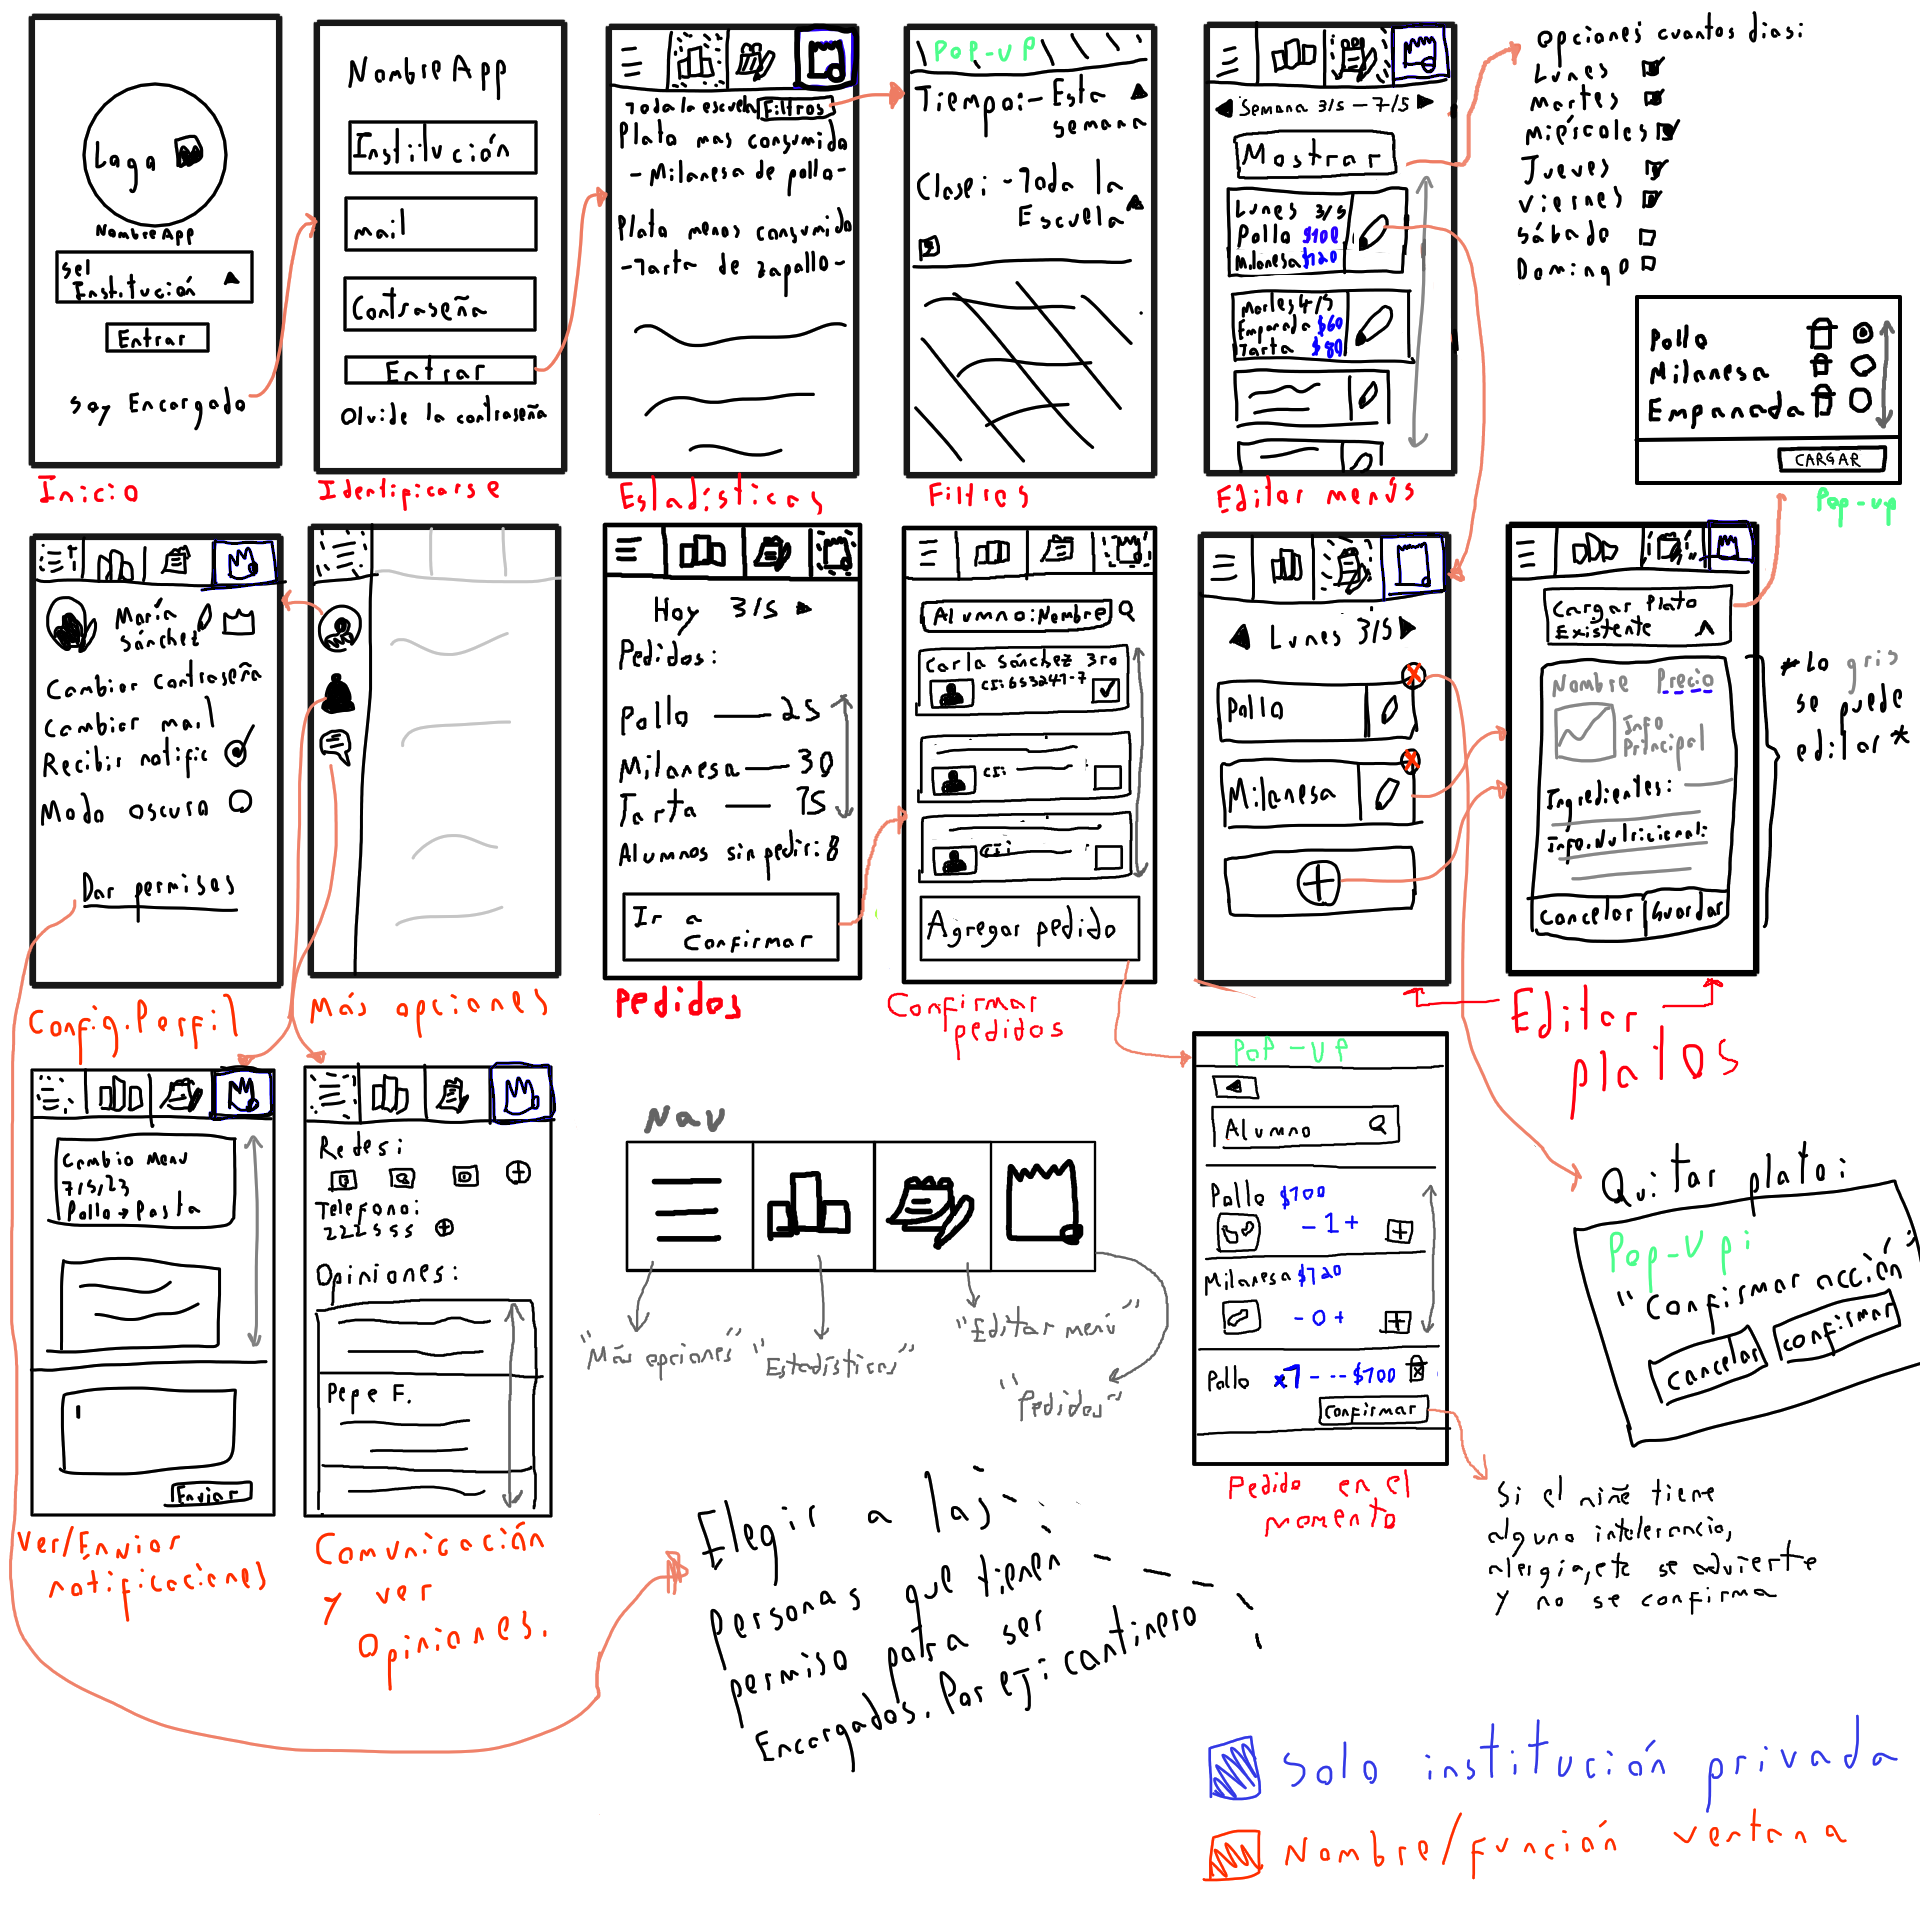 Logo
NombreApp
Sel
Institución
Entrar
Soy Encargado
Inicio
Nombre App
Institución
mail
Contraseña
Entrar
Olvide la contraseña
Identificarse
Toda la escuela Filtros
Plato mas consumido
- Milanesa de pollo -
Plato menos consumido
- Tarta de zapallo -
Estadísticas
POP-UP
Tiempo: - Esta
semana
Clase: - Toda la
Escuela
Filtros
Semana 3/5 - 7/5
Mostrar
Lunes 3/5
Pollo $100
Milanesa $120
Martes 4/5
Empanada $60
Tarta $80
Editar menús
Opciones cuantos dias:
Lunes
Martes
Miércoles
Jueves
Viernes
Sábado
Domingo
Pollo
Milanesa
Empanada
CARGAR
Pop-up
María
Sánchez
Cambiar contraseña
Cambiar mail
Recibir notific
Modo oscuro
Dar permisos
Config. Perfil
Más opciones
Hoy 3/5
Pedidos:
Pollo — 25
Milanesa — 30
Tarta — 15
Alumnos sin pedir: 8
Ir a
Confirmar
Pedidos
Alumno: Nombre
Carla Sánchez 3ro
CI: 653247-7
CI:
CI:
Agregar pedido
Confirmar
pedidos
Lunes 3/5
Pollo
Milanesa
Cargar Plato
Existente
Nombre Precio
Info
Principal
Ingredientes:
Info. Nutricional:
Cancelar Guardar
*Lo gris
se puede
editar*
Editar
platos
Cambio Menu
7/5/23
Pollo → Pasta
Enviar
Ver/Enviar
notificaciones
Redes:
Telefono:
222555
Opiniones:
Pepe F.
Comunicación
y ver
Opiniones.
Nav
"Más opciones"
"Estadísticas"
"Editar menú"
"Pedidos"
POP-UP
Alumno
Pollo $100
- 1 +
Milanesa $120
- 0 +
Pollo x1 --- $100
Confirmar
Pedido en el
momento
Quitar plato:
Pop-Up:
"Confirmar acción"
cancelar confirmar
Si el niñe tiene
alguna intolerancia,
alergia, etc se advierte
y no se confirma
Elegir a las
personas que tienen
permiso para ser
Encargados. Por ej: cantinero
Solo institución privada
Nombre/función ventana